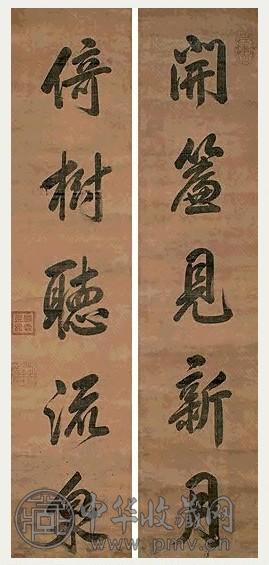 開簾見新月
倚樹聽流泉
中华收藏网
www.pmv.cn